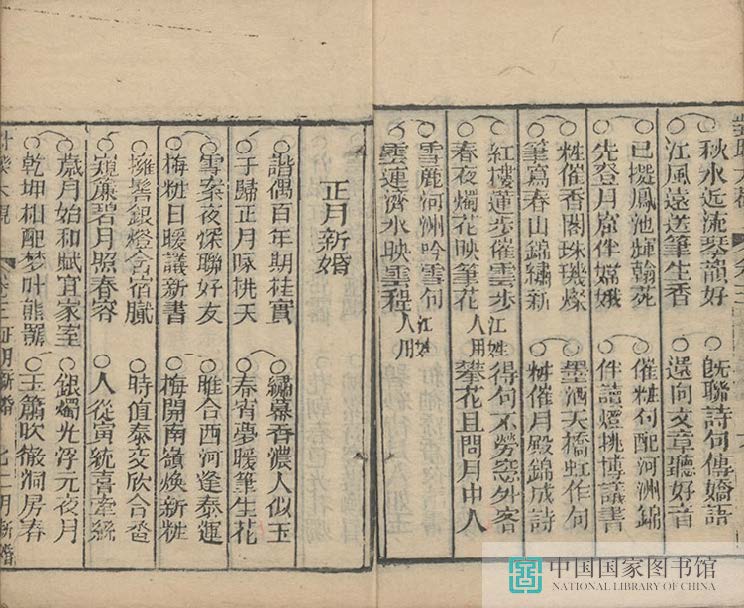 秋水近流琴韻好
江風遠送筆生香
已攏鳳池輝翰苑
先登月窟伴嫦娥
粧催香閣珠璣燦
筆寫春山錦繡新
紅樓蓮步催雲步
春夜燭花映筆花
雪麗河洲吟雪句
雲連濟水映雲程
江姓人用
既聯詩句傳嬌語
還向文章聽好音
催粧句配河洲錦
伴讀燈挑博議書
墨洒天橋虹作句
粧催月殿錦成詩
得句不勞窓外客
攀花且問月中人
江姓人用
正月新婚
諧偶百年期桂實
于歸正月咏桃夭
雪案夜深聯好友
梅粧日暖議新書
擁髻銀燈含宿膩
窺簾碧月照春容
歲月始和賦宜家室
乾坤相配梦叶熊羆
繡幕香濃人似玉
春宵夢暖筆生花
雎合西河逢泰運
梅開南嶺煥新粧
時值泰交欣合卺
人從寅統喜牽絲
銀燭光浮元夜月
玉簫吹徹洞房春
正月新婚
二月新婚
中国国家图书馆
NATIONAL LIBRARY OF CHINA